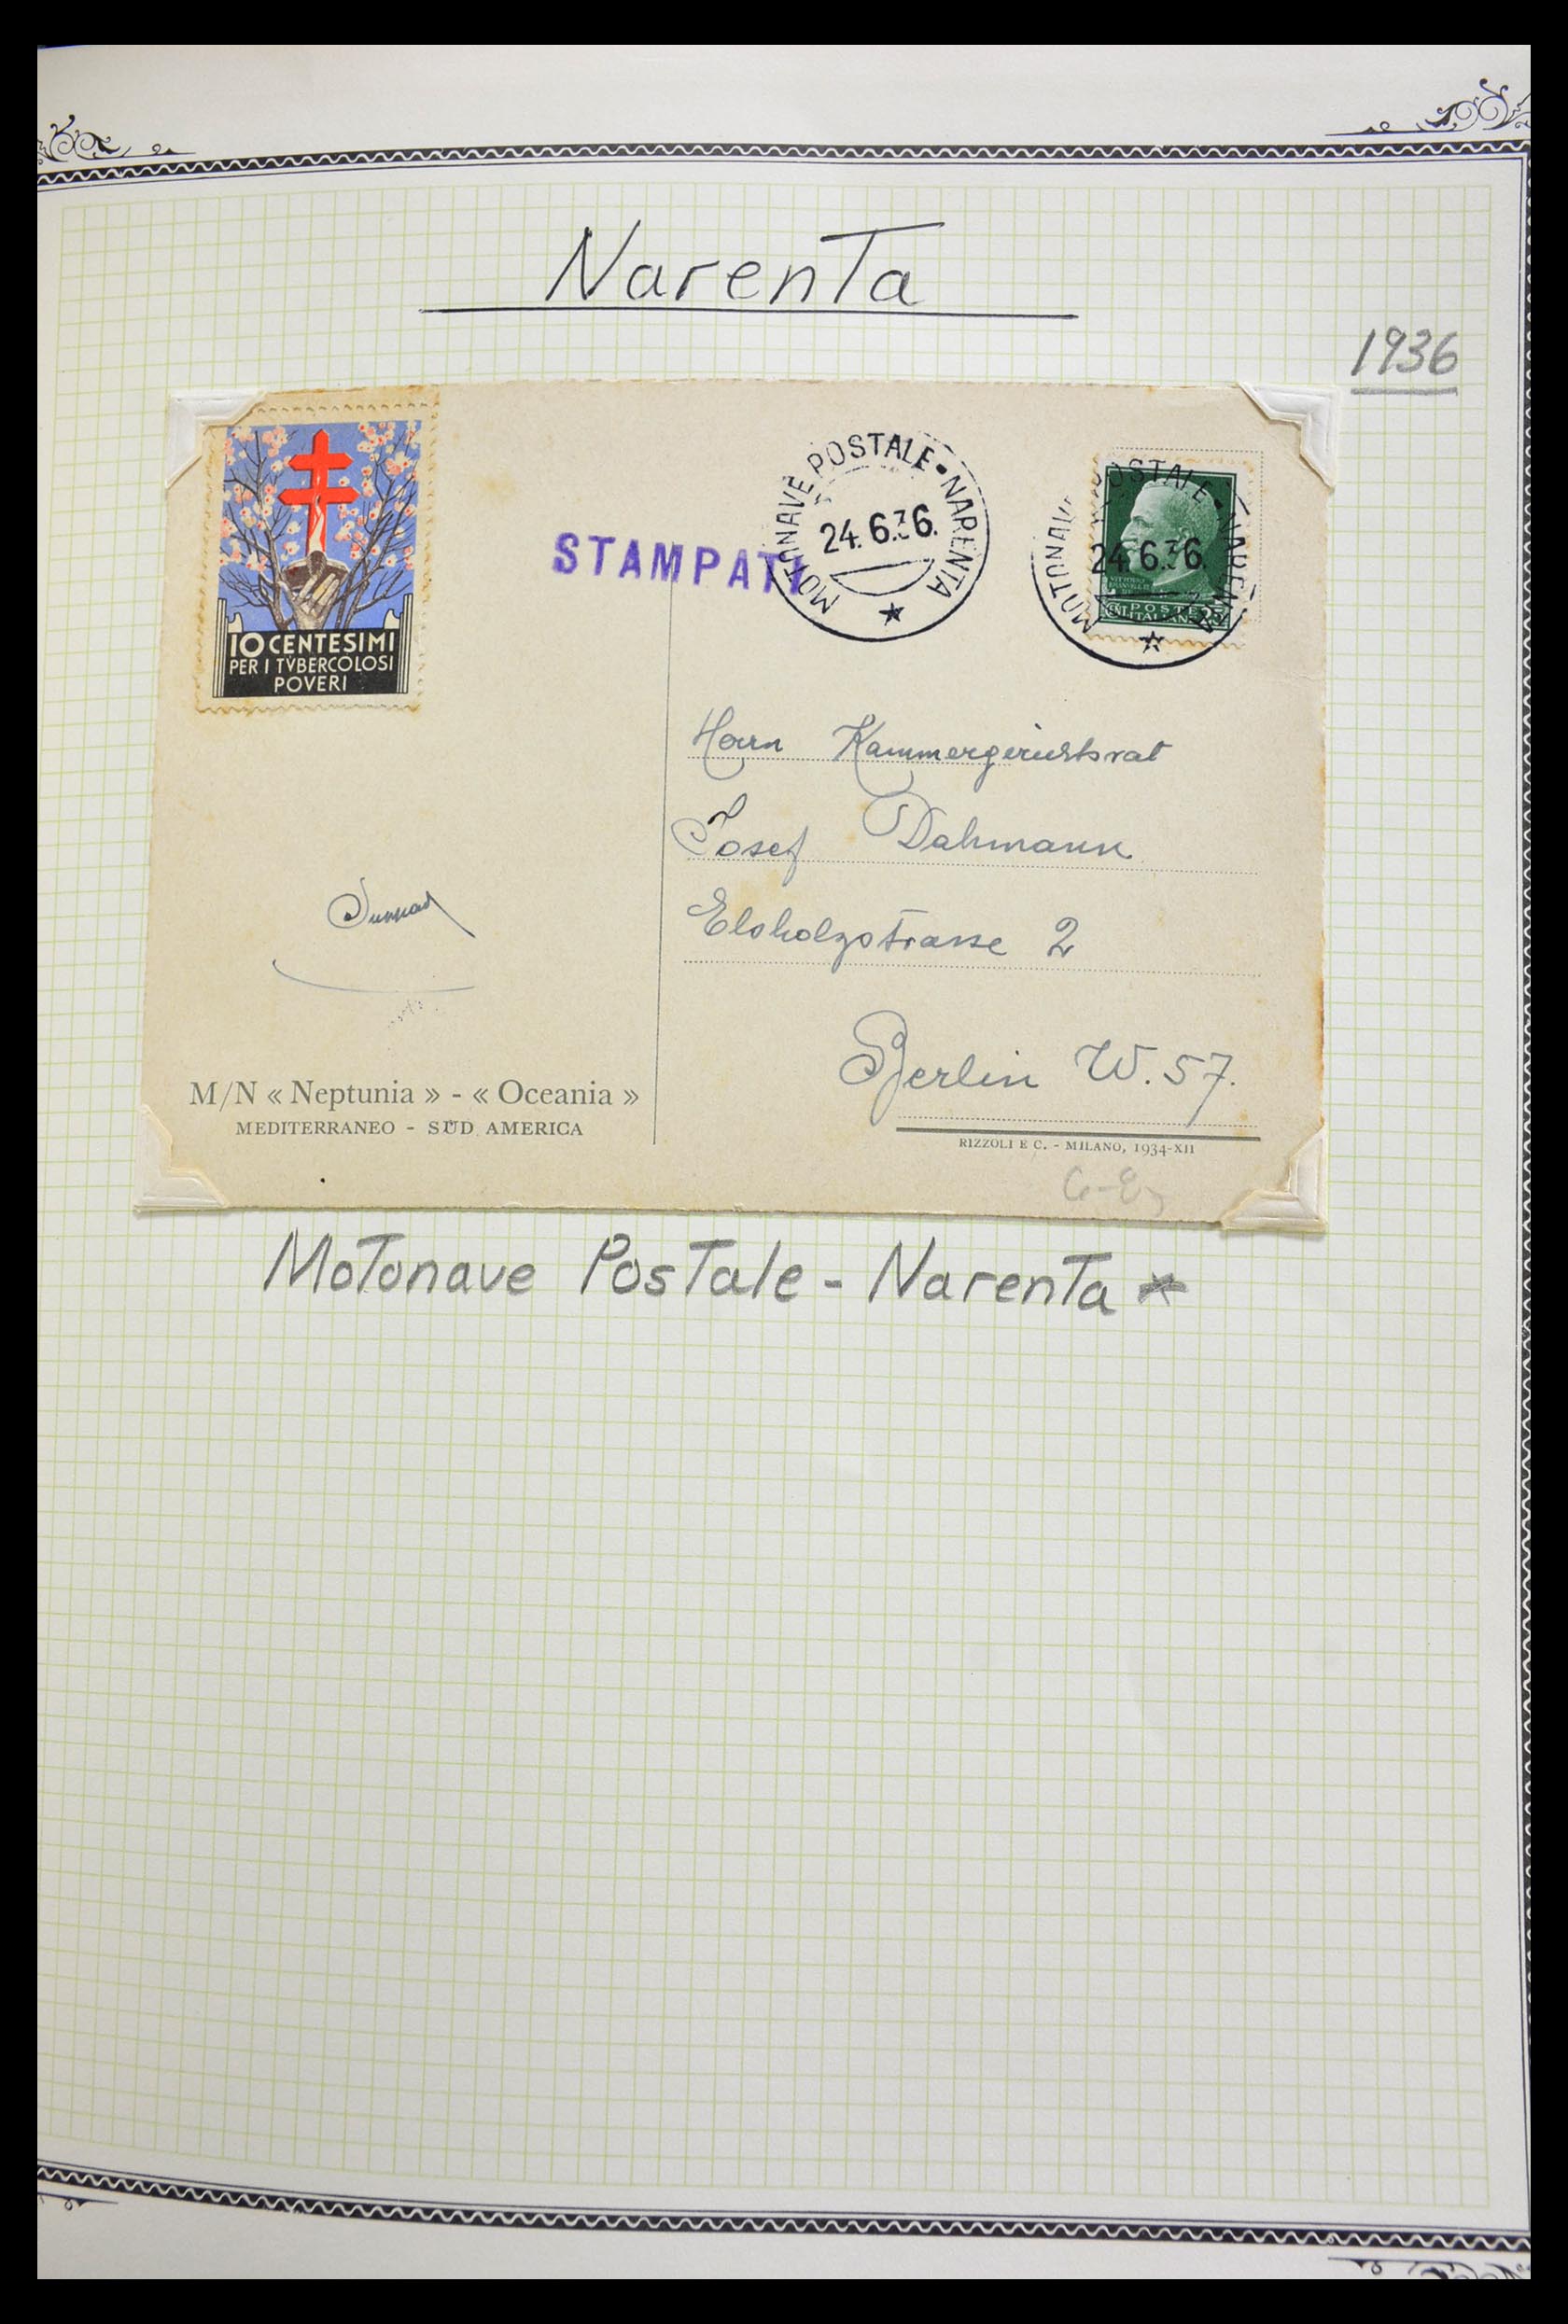 Narenta
1936
10 CENTESIMI
PER I TVBERCOLOSI
POVERI
STAMPATI
MOTONAVE POSTALE • NARENTA
24.6.36.
MOTONAVE POSTALE • NARENTA
24.6.36.
POSTE
ITALIANE
CENT. 25
Herrn Kammergerichtsrat
Josef Dahmann
Elsholzstrasse 2
Berlin W. 57.
M/N « Neptunia » - « Oceania »
MEDITERRANEO - SUD AMERICA
RIZZOLI E C. - MILANO, 1934-XII
Motonave Postale - Narenta *